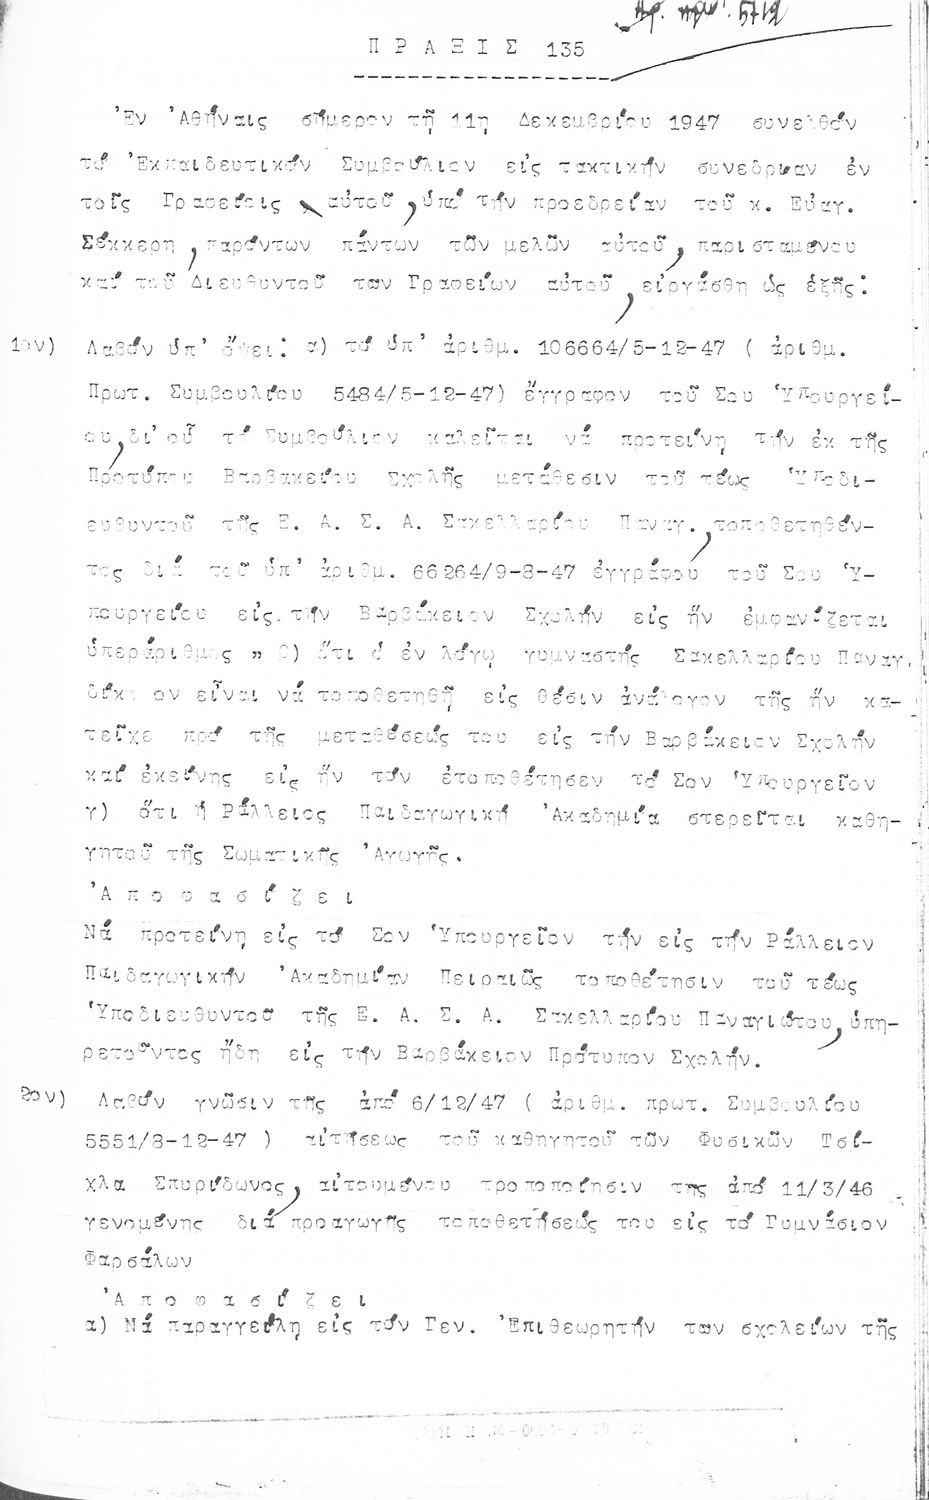 Ἀρ. πρωτ. 5712
Π Ρ Α Ξ Ι Σ 135
Ἐν Ἀθήναις σήμερον τῇ 11η Δεκεμβρίου 1947 συνελθόν
τό Ἐκπαιδευτικόν Συμβούλιον εἰς τακτικήν συνεδρίαν ἐν
τοῖς Γραφείοις αὐτοῦ, ὑπό τήν προεδρείαν τοῦ κ. Εὐαγ.
Σέκκερη, παρόντων πάντων τῶν μελῶν αὐτοῦ, παρισταμένου
καί τοῦ Διευθυντοῦ των Γραφείων αὐτοῦ, εἰργάσθη ὡς ἑξῆς:
1ον) Λαβόν ὑπ' ὄψει: α) τό ὑπ' ἀριθμ. 106664/5-12-47 ( ἀριθμ.
Πρωτ. Συμβουλίου 5484/5-12-47) ἔγγραφον τοῦ Σου Ὑπουργεί-
ου, δι' οὗ τό Συμβούλιον καλεῖται νά προτείνη τήν ἐκ τῆς
Προτύπου Βαρβακείου Σχολῆς μετάθεσιν τοῦ τέως Ὑποδι-
ευθυντοῦ τῆς Ε. Α. Σ. Α. Σακελλαρίου Παναγ., τοποθετηθέν-
τος διά τοῦ ὑπ' ἀριθμ. 66264/9-8-47 ἐγγράφου τοῦ Σου Ὑ-
πουργείου εἰς τήν Βαρβάκειον Σχολήν εἰς ἥν ἐμφανίζεται
ὑπεράριθμος " β) ὅτι ὁ ἐν λόγῳ γυμναστής Σακελλαρίου Παναγ.
δίκαιον εἶναι νά τοποθετηθῆ εἰς θέσιν ἀνάλογον τῆς ἥν κα-
τεῖχε πρό τῆς μεταθέσεώς του εἰς τήν Βαρβάκειον Σχολήν
καί ἐκείνης εἰς ἥν τόν ἐτοποθέτησεν τό Σον Ὑπουργεῖον
γ) ὅτι ἡ Ράλλειος Παιδαγωγική Ἀκαδημία στερεῖται καθη-
γητοῦ τῆς Σωματικῆς Ἀγωγῆς.
Ἀ π ο φ α σ ί ζ ε ι
Νά προτείνη εἰς τό Σον Ὑπουργεῖον τήν εἰς τήν Ράλλειον
Παιδαγωγικήν Ἀκαδημίαν Πειραιῶς τοποθέτησιν τοῦ τέως
Ὑποδιευθυντοῦ τῆς Ε. Α. Σ. Α. Σακελλαρίου Παναγιώτου, ὑπη-
ρετοῦντος ἤδη εἰς τήν Βαρβάκειον Πρότυπον Σχολήν.
2ον) Λαβόν γνῶσιν τῆς ἀπό 6/12/47 ( ἀριθμ. πρωτ. Συμβουλίου
5551/8-12-47 ) αἰτήσεως τοῦ καθηγητοῦ τῶν Φυσικῶν Τσί-
χλα Σπυρίδωνος, αἰτουμένου τροποποίησιν της ἀπό 11/3/46
γενομένης διά προαγωγῆς τοποθετήσεώς του εἰς τό Γυμνάσιον
Φαρσάλων
Ἀ π ο φ α σ ί ζ ε ι
α) Νά παραγγείλη εἰς τόν Γεν. Ἐπιθεωρητήν των σχολείων τῆς